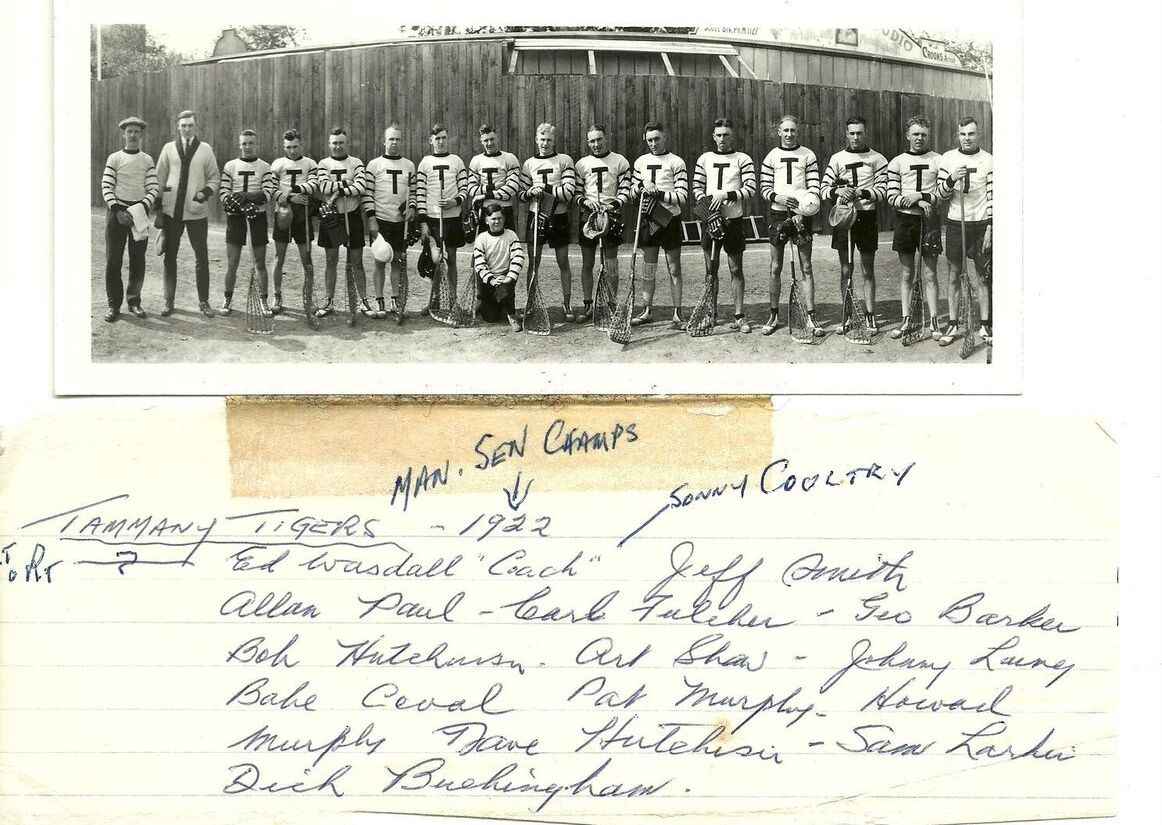 CROOKS
T T T T T T T T T T T T T T
MAN. SEN CHAMPS
SONNY COULTRY
TAMMANY TIGERS - 1922
To RT ?
Ed Wasdall "Coach" Jeff Smith
Allan Paul - Carl Fulcher - Geo Barker
Bob Hutchinson. Art Shaw - Johnny Laing
Babe Coval Pat Murphy - Howard
Murphy Dave Hutchison - Sam Larkin
Dick Buckingham.